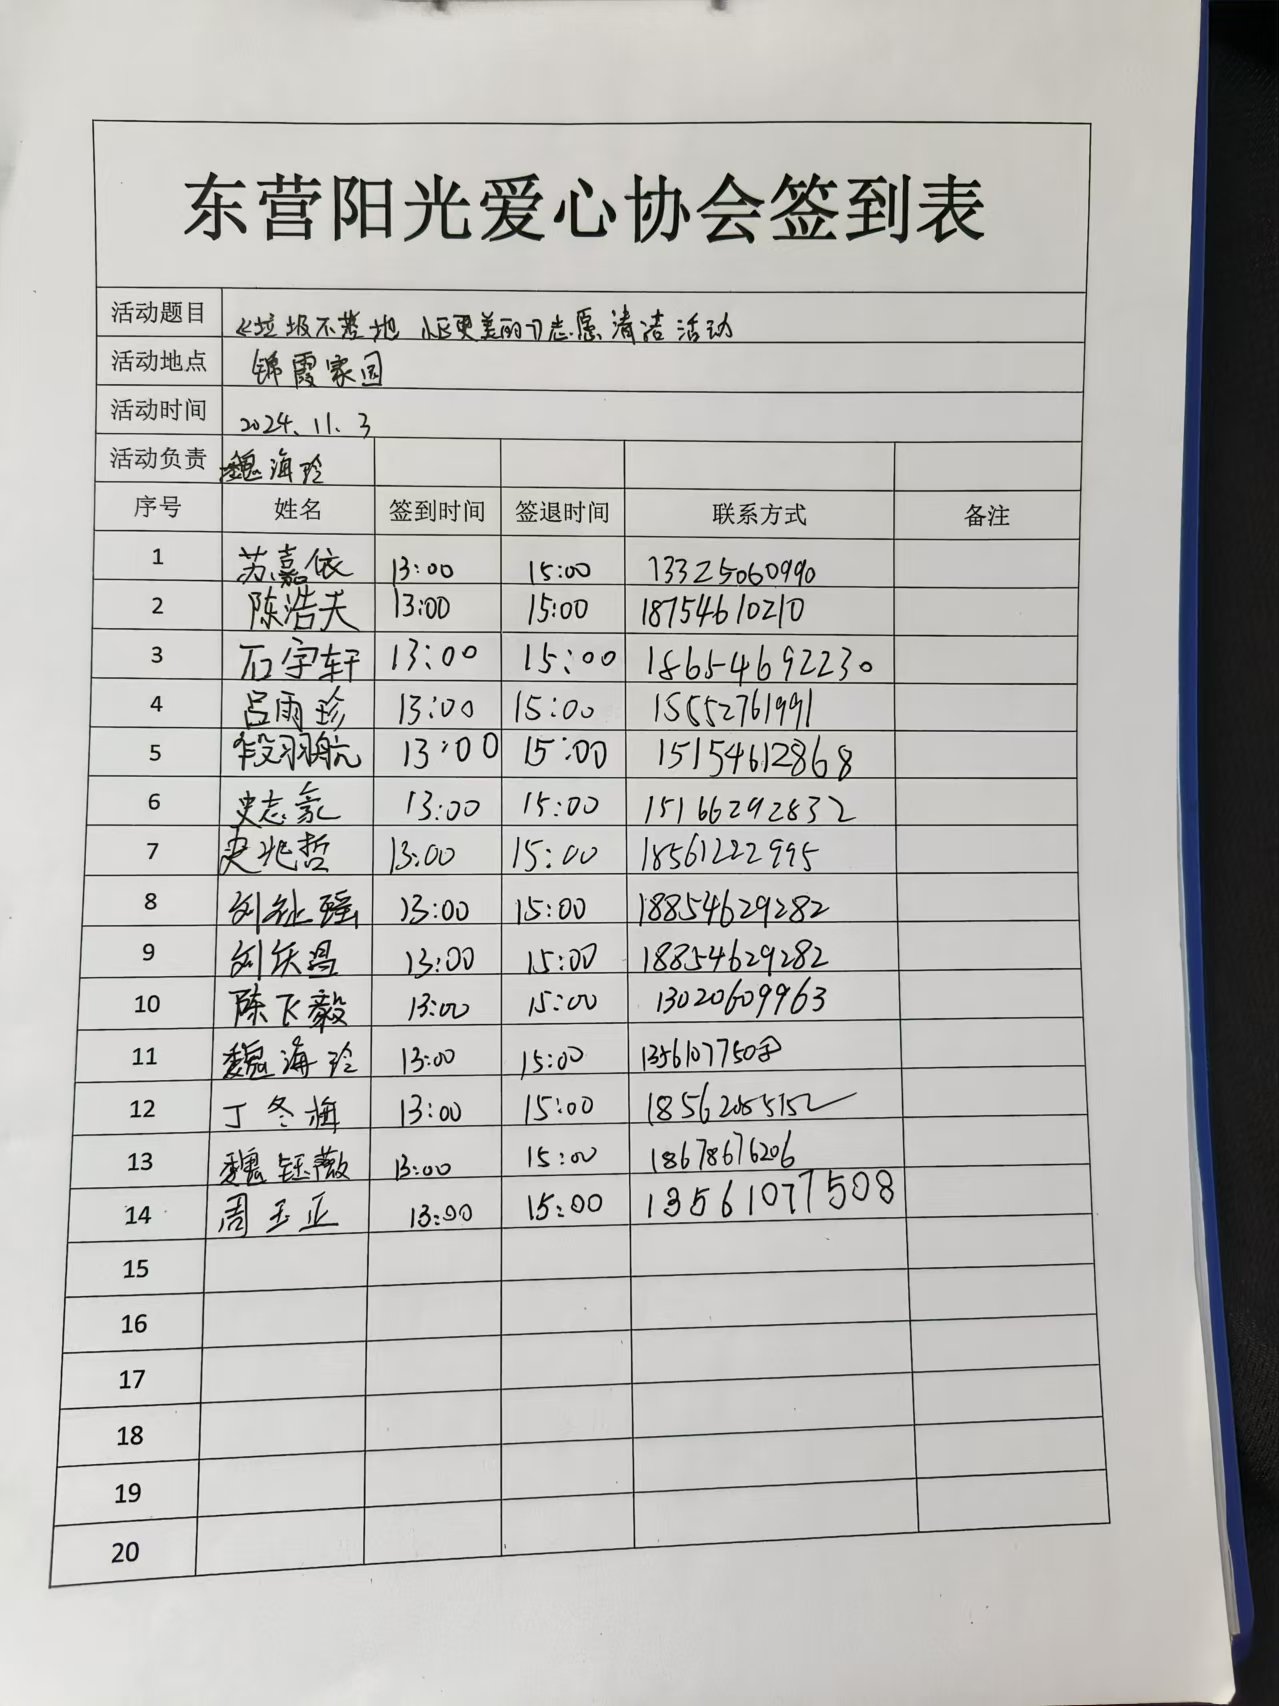 东营阳光爱心协会签到表
活动题目 《垃圾不落地 小区更美的》志愿清洁活动
活动地点 锦霞家园
活动时间 2024、11、3
活动负责 魏海玲
序号 姓名 签到时间 签退时间 联系方式 备注
1 苏嘉依 13:00 15:00 13325060990
2 陈浩天 13:00 15:00 18754610210
3 石宇轩 13:00 15:00 18654692230
4 吕雨珍 13:00 15:00 15552761991
5 段羽航 13:00 15:00 15154612868
6 史志豪 13:00 15:00 15166292832
7 史兆哲 13:00 15:00 18561222995
8 刘祉瑶 13:00 15:00 18854629282
9 刘 13:00 15:00 18854629282
10 陈飞毅 13:00 15:00 13020609963
11 魏海玲 13:00 15:00
12 丁冬梅 13:00 15:00 18562055152
13 魏钰薇 13:00 15:00 18678676206
14 周玉正 13:00 15:00 13561077508
15
16
17
18
19
20